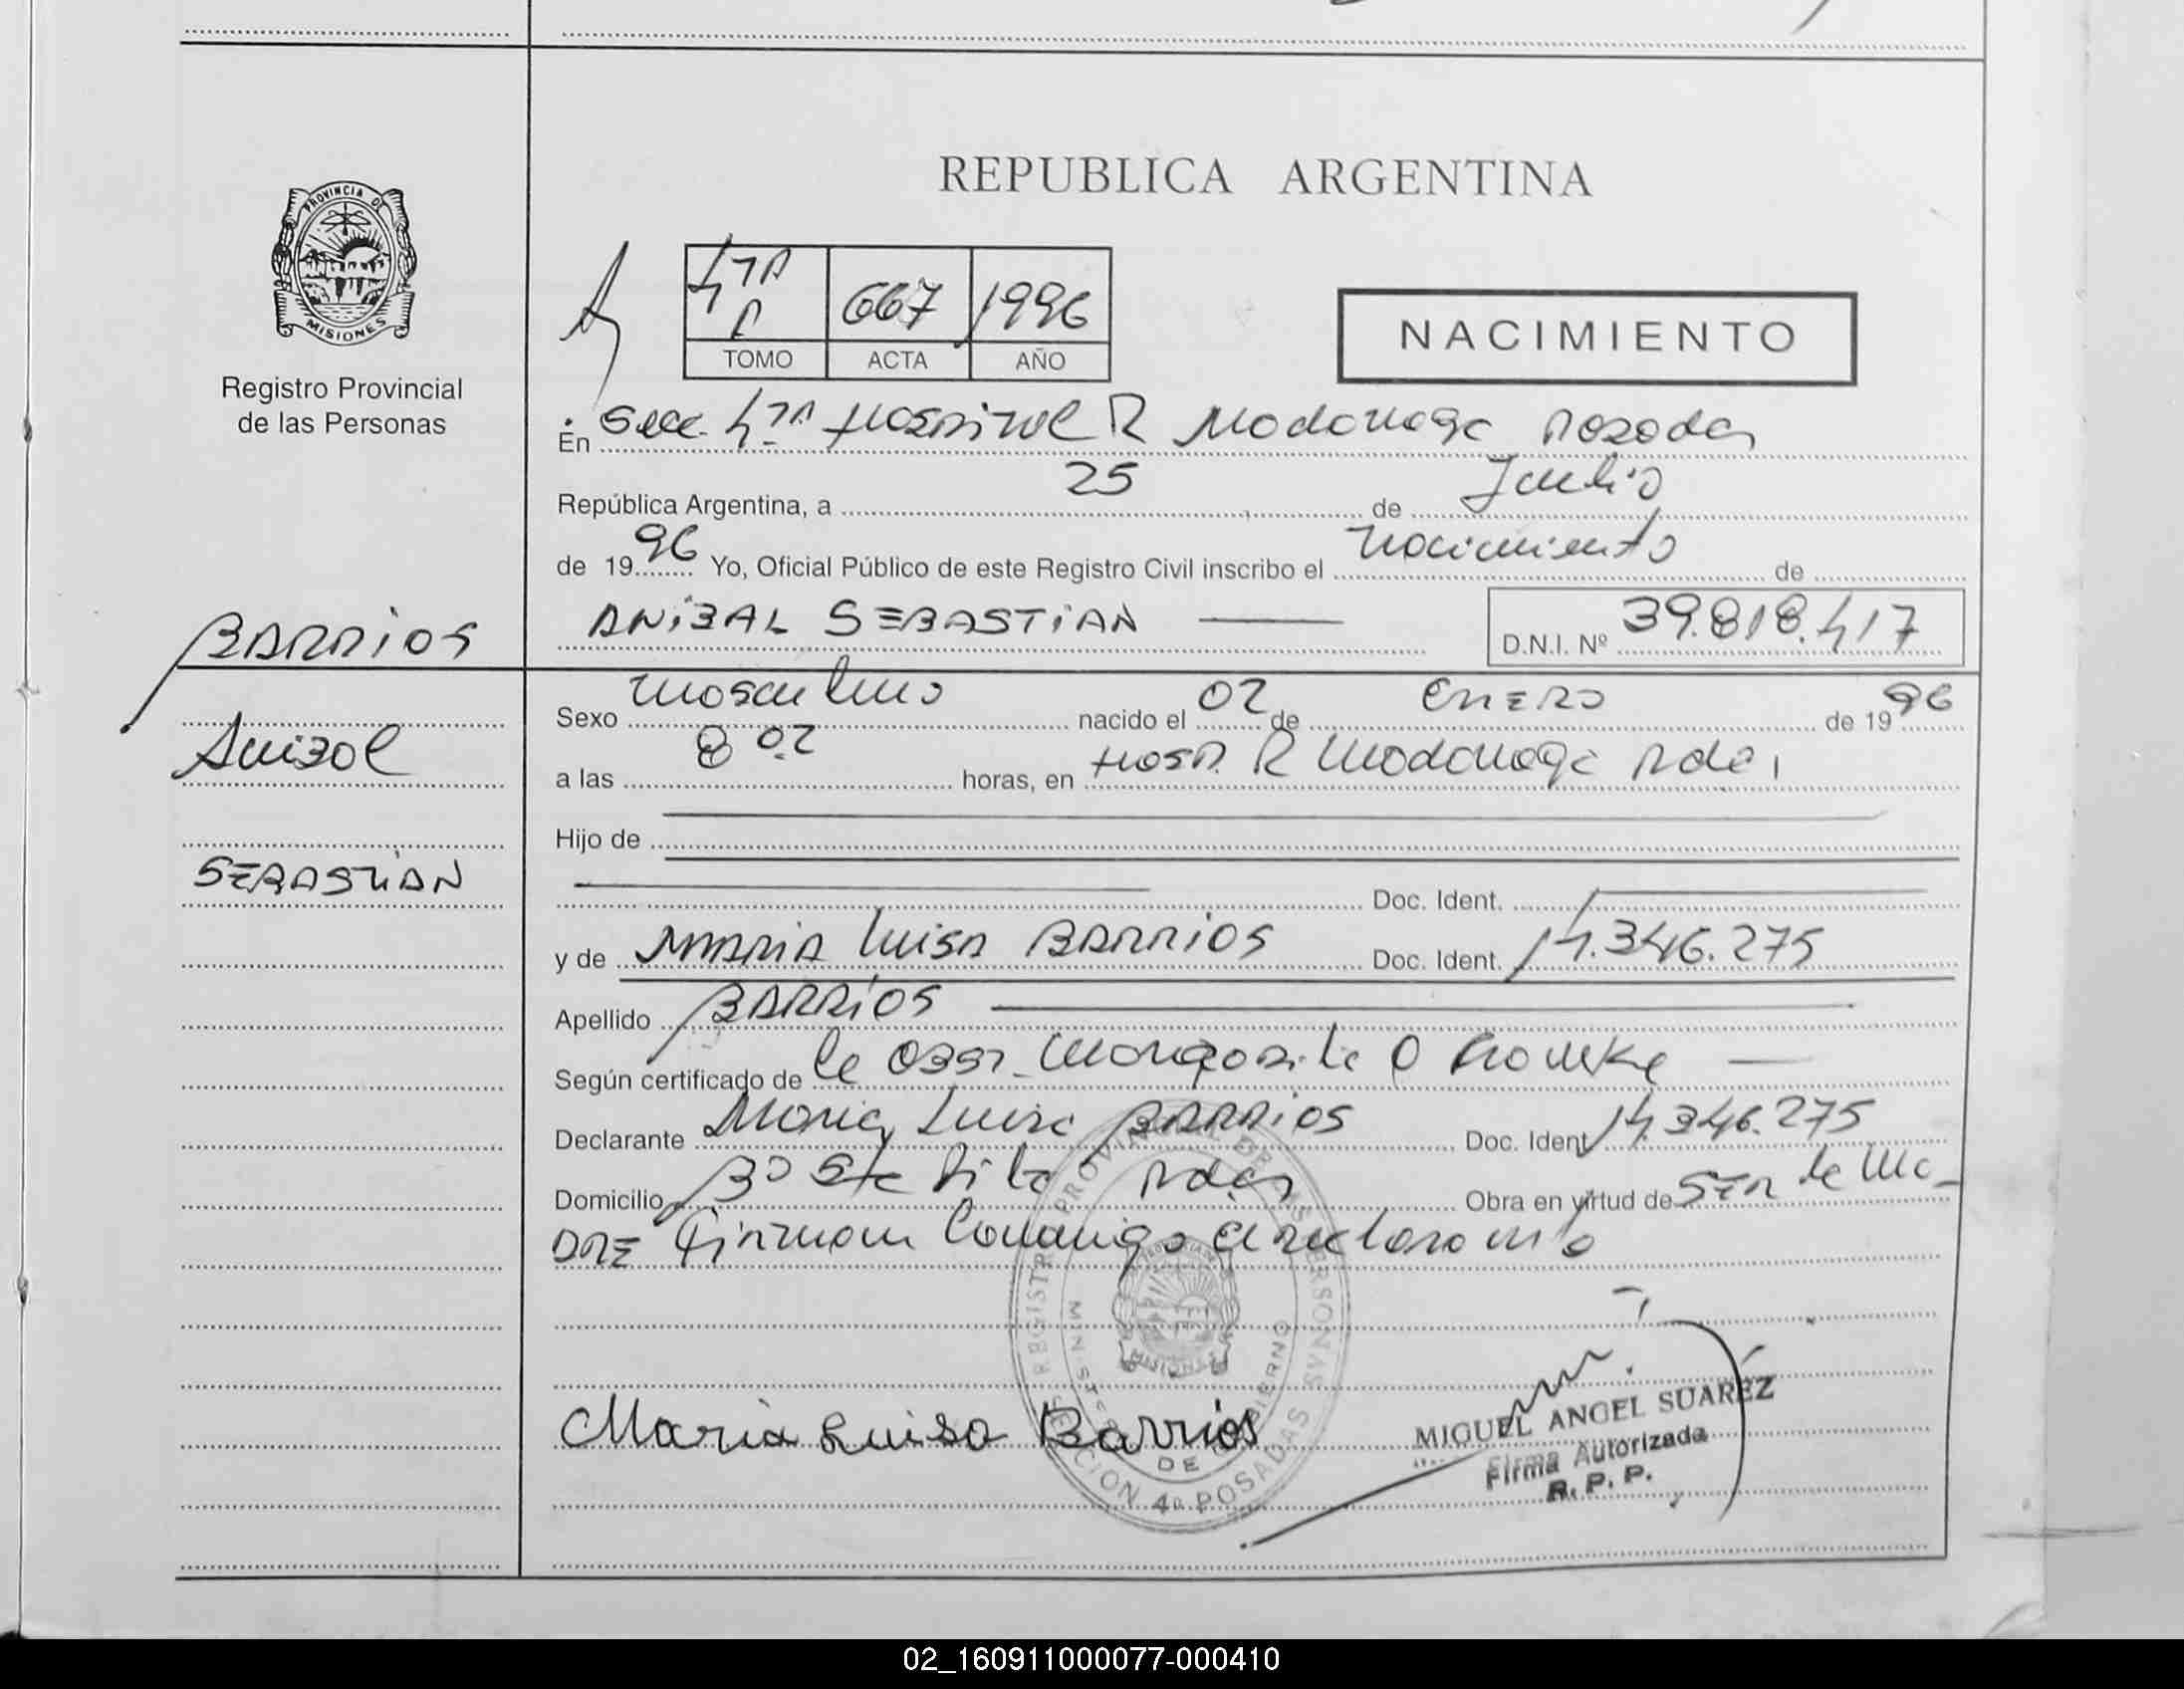 REPUBLICA ARGENTINA
PROVINCIA DE
MISIONES
Registro Provincial
de las Personas
667 1996
TOMO ACTA AÑO
NACIMIENTO
En Secc. 4ta Hospital R Madariaga Posadas
República Argentina, a 25 de Julio
de 1996 Yo, Oficial Público de este Registro Civil inscribo el nacimiento de
ANIBAL SEBASTIAN
D.N.I. Nº 39.818.417
BARRIOS
Anibal
SEBASTIAN
Sexo masculino nacido el 02 de ENERO de 1996
a las 8 02 horas, en Hosp. R Madariaga Pdas
Hijo de
Doc. Ident.
y de MARIA Luisa BARRIOS Doc. Ident. 14.346.275
Apellido BARRIOS
Según certificado de la Obst. Margarita
Declarante Maria Luisa BARRIOS Doc. Ident 14.346.275
Domicilio Bº Sta Rita Pdas Obra en virtud de SER la Ma-
DRE Firman Conmigo
REGISTRO PROVINCIAL DE LAS PERSONAS
MINISTERIO DE GOBIERNO
MISIONES
SECCION 4a POSADAS
Maria Luisa Barrios
MIGUEL ANGEL SUAREZ
Firma Autorizada
R. P. P.
02_160911000077-000410